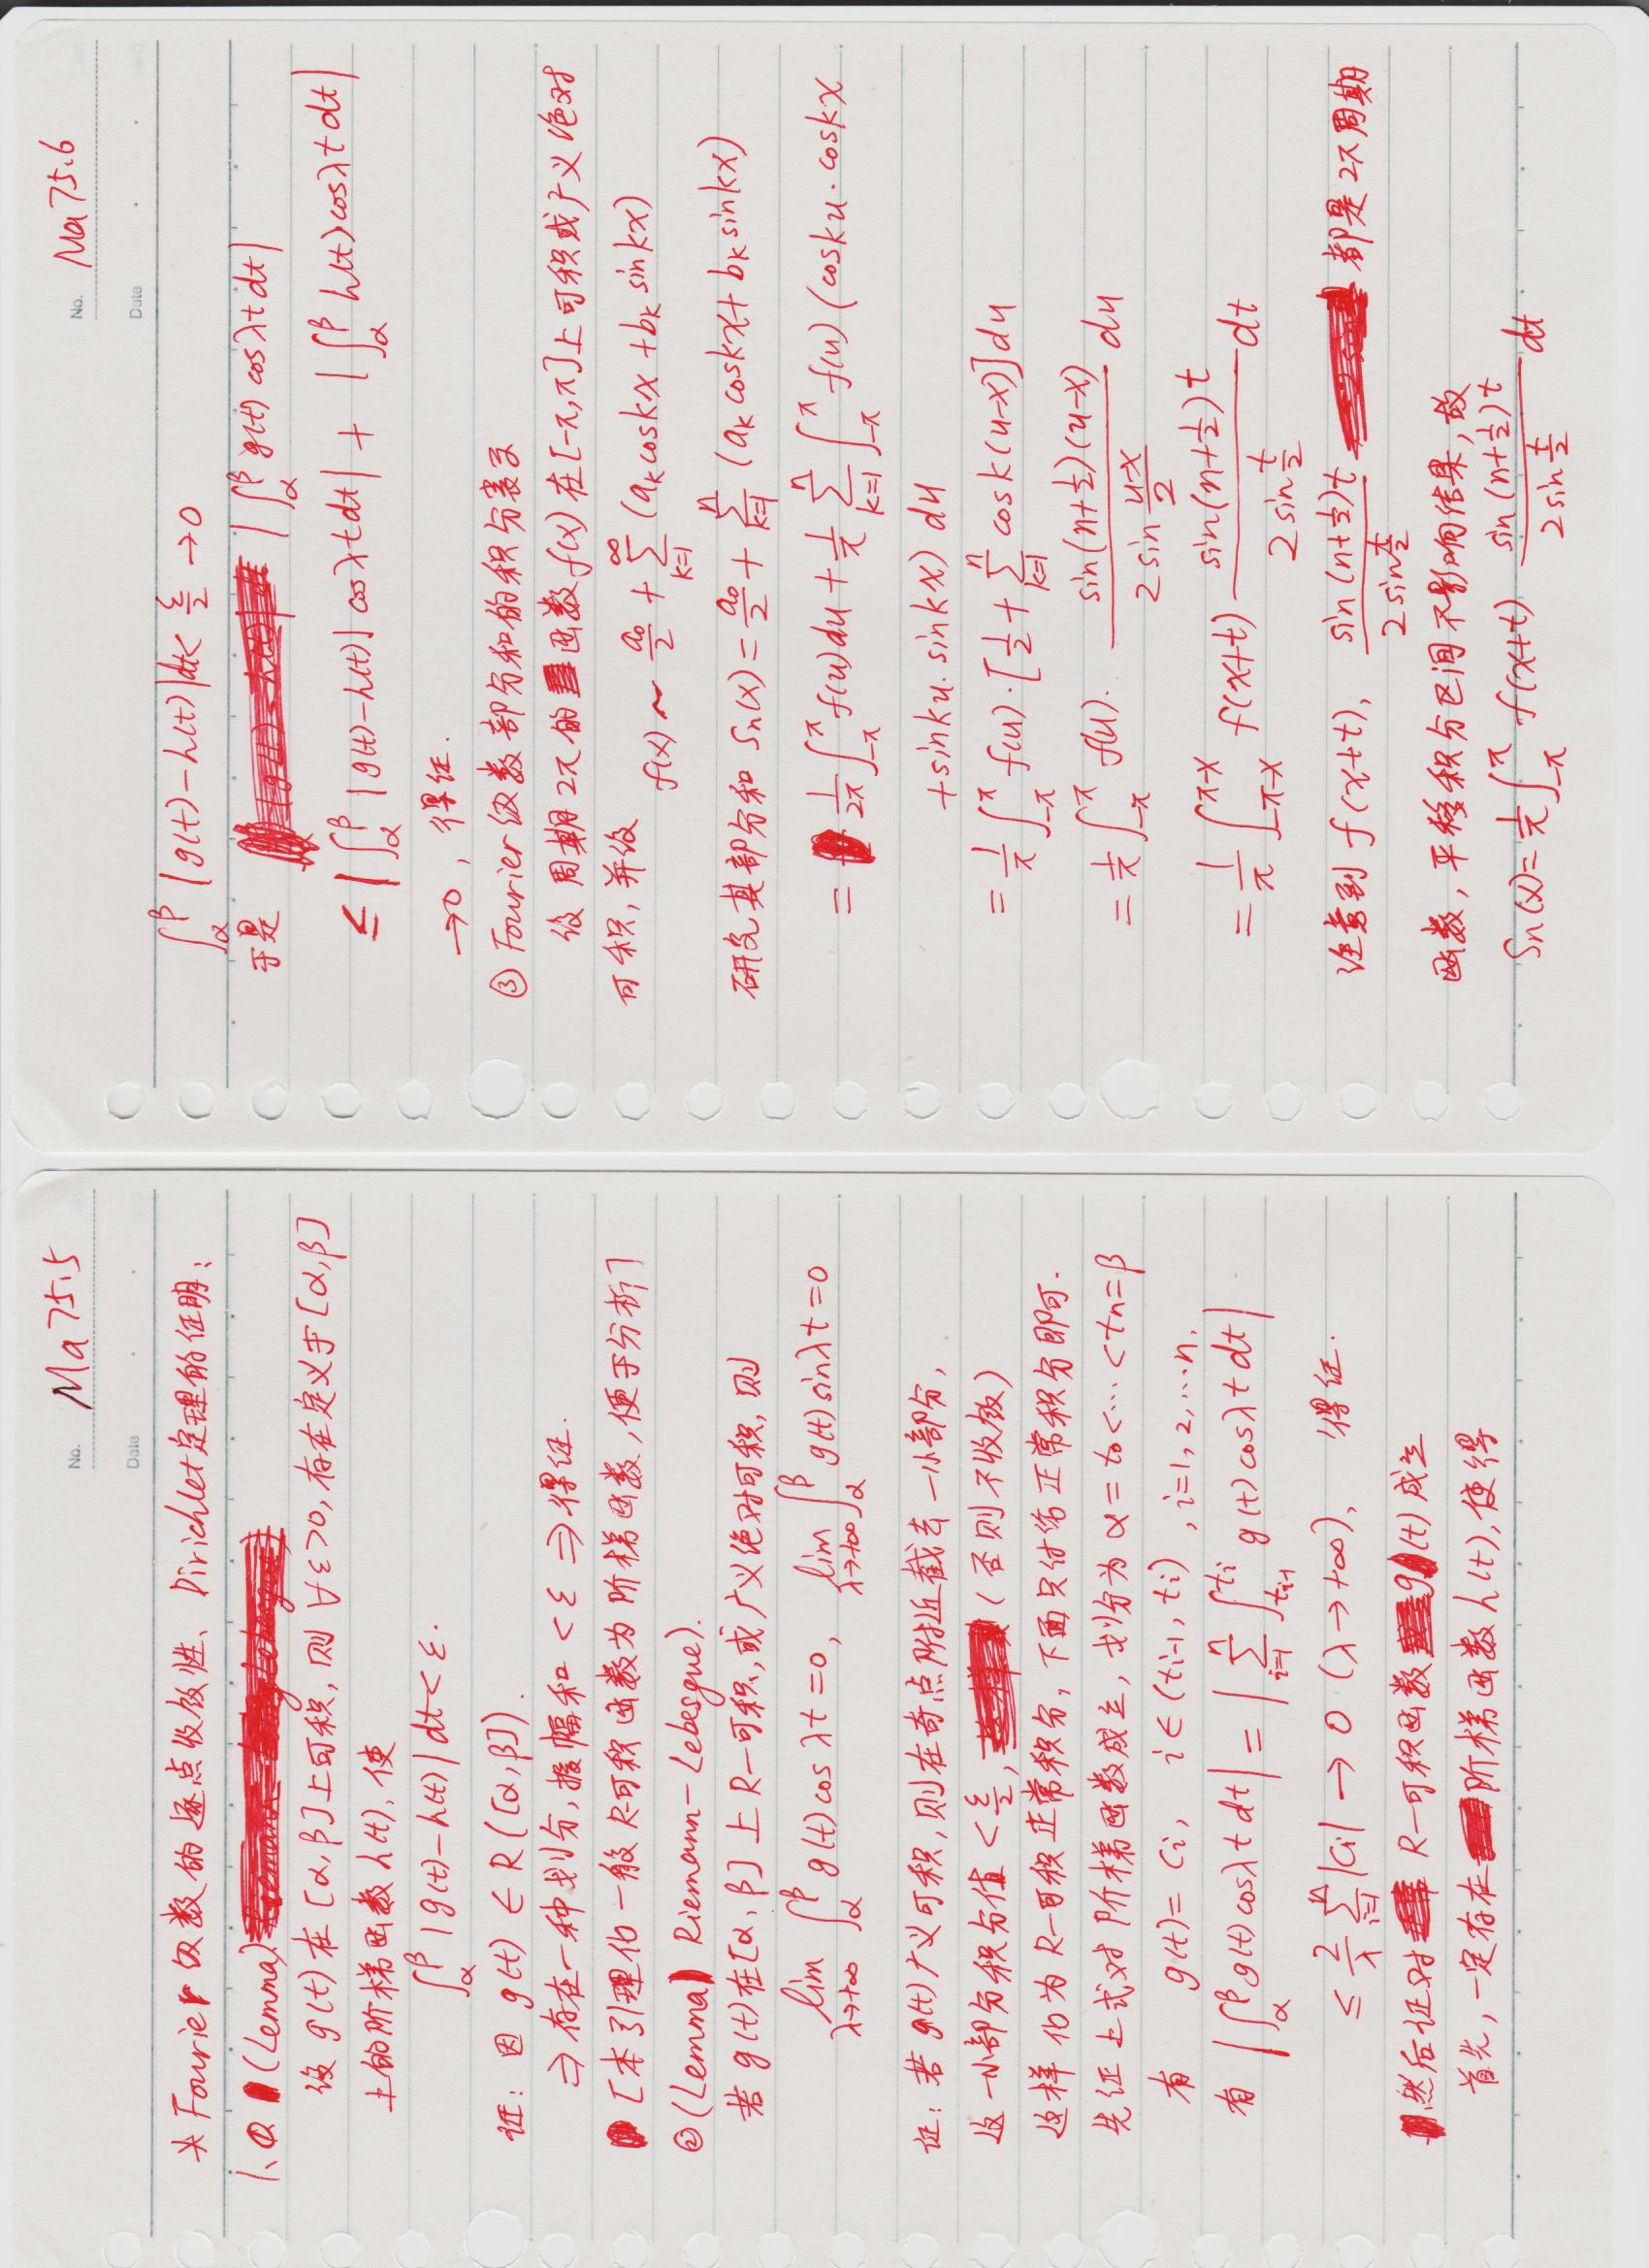 No. Ma75.5
Date
* Fourier 级数的逐点收敛性、Dirichlet定理的证明:
1、① (Lemma)
设 g(t) 在 [α,β]上可积, 则 ∀ε>0, 存在定义于[α,β]
上的阶梯函数 h(t), 使
∫_α^β |g(t)-h(t)| dt < ε.
证: 因 g(t) ∈ R([α,β]).
⇒ 存在一种划分, 振幅和 < ε ⇒ 得证.
[本引理化一般 R-可积函数为阶梯函数, 便于分析]
② (Lemma) Riemann-Lebesgue).
若 g(t)在[α, β] 上 R-可积, 或广义绝对可积, 则
lim_{λ→+∞} ∫_α^β g(t) cos λt = 0, lim_{λ→+∞} ∫_α^β g(t) sinλt = 0
证: 若 g(t)广义可积, 则在奇点附近截去一小部分,
这一小部分积分值 < ε/2, (否则不收敛)
这样化为 R-可积正常积分, 下面只讨论正常积分即可.
先证上式对阶梯函数成立, 划分为 α = t0 < … < tn = β
有 g(t) = Ci, i ∈ (ti-1, ti), i=1, 2, …n.
有 |∫_α^β g(t) cosλt dt| = |∑_{i=1}^n ∫_{ti-1}^{ti} g(t) cosλt dt|
≤ 2/λ ∑_{i=1}^n |Ci| → 0 (λ → +∞), 得证.
然后证对 R-可积函数 g(t) 成立
首先, 一定存在阶梯函数 h(t), 使得
No. Ma75.6
Date
∫_α^β |g(t)-h(t)|dt < ε/2 → 0
于是 |∫_α^β g(t) cosλt dt|
≤ |∫_α^β |g(t)-h(t)| cosλt dt| + |∫_α^β h(t) cosλt dt|
→0, 得证.
③ Fourier 级数部分和的积分表示
设周期2π的函数 f(x) 在[-π,π]上可积或广义绝对
可积, 并设 f(x) ~ a0/2 + ∑_{k=1}^∞ (ak coskx + bk sinkx)
研究其部分和 Sn(x) = a0/2 + ∑_{k=1}^n (ak coskx + bk sinkx)
= 1/2π ∫_{-π}^π f(u) du + 1/π ∑_{k=1}^n ∫_{-π}^π f(u) (cosku·coskx
+ sinku·sinkx) du
= 1/π ∫_{-π}^π f(u)·[1/2 + ∑_{k=1}^n cosk(u-x)] du
= 1/π ∫_{-π}^π f(u)· sin(n+1/2)(u-x) / 2sin (u-x)/2 du
= 1/π ∫_{-π-x}^{π-x} f(x+t) sin(n+1/2)t / 2sin t/2 dt
注意到 f(x+t), sin(n+1/2)t / 2sin t/2 都是2π周期
函数, 平移积分区间不影响结果, 故
Sn(x) = 1/π ∫_{-π}^π f(x+t) sin(n+1/2)t / 2sin t/2 dt